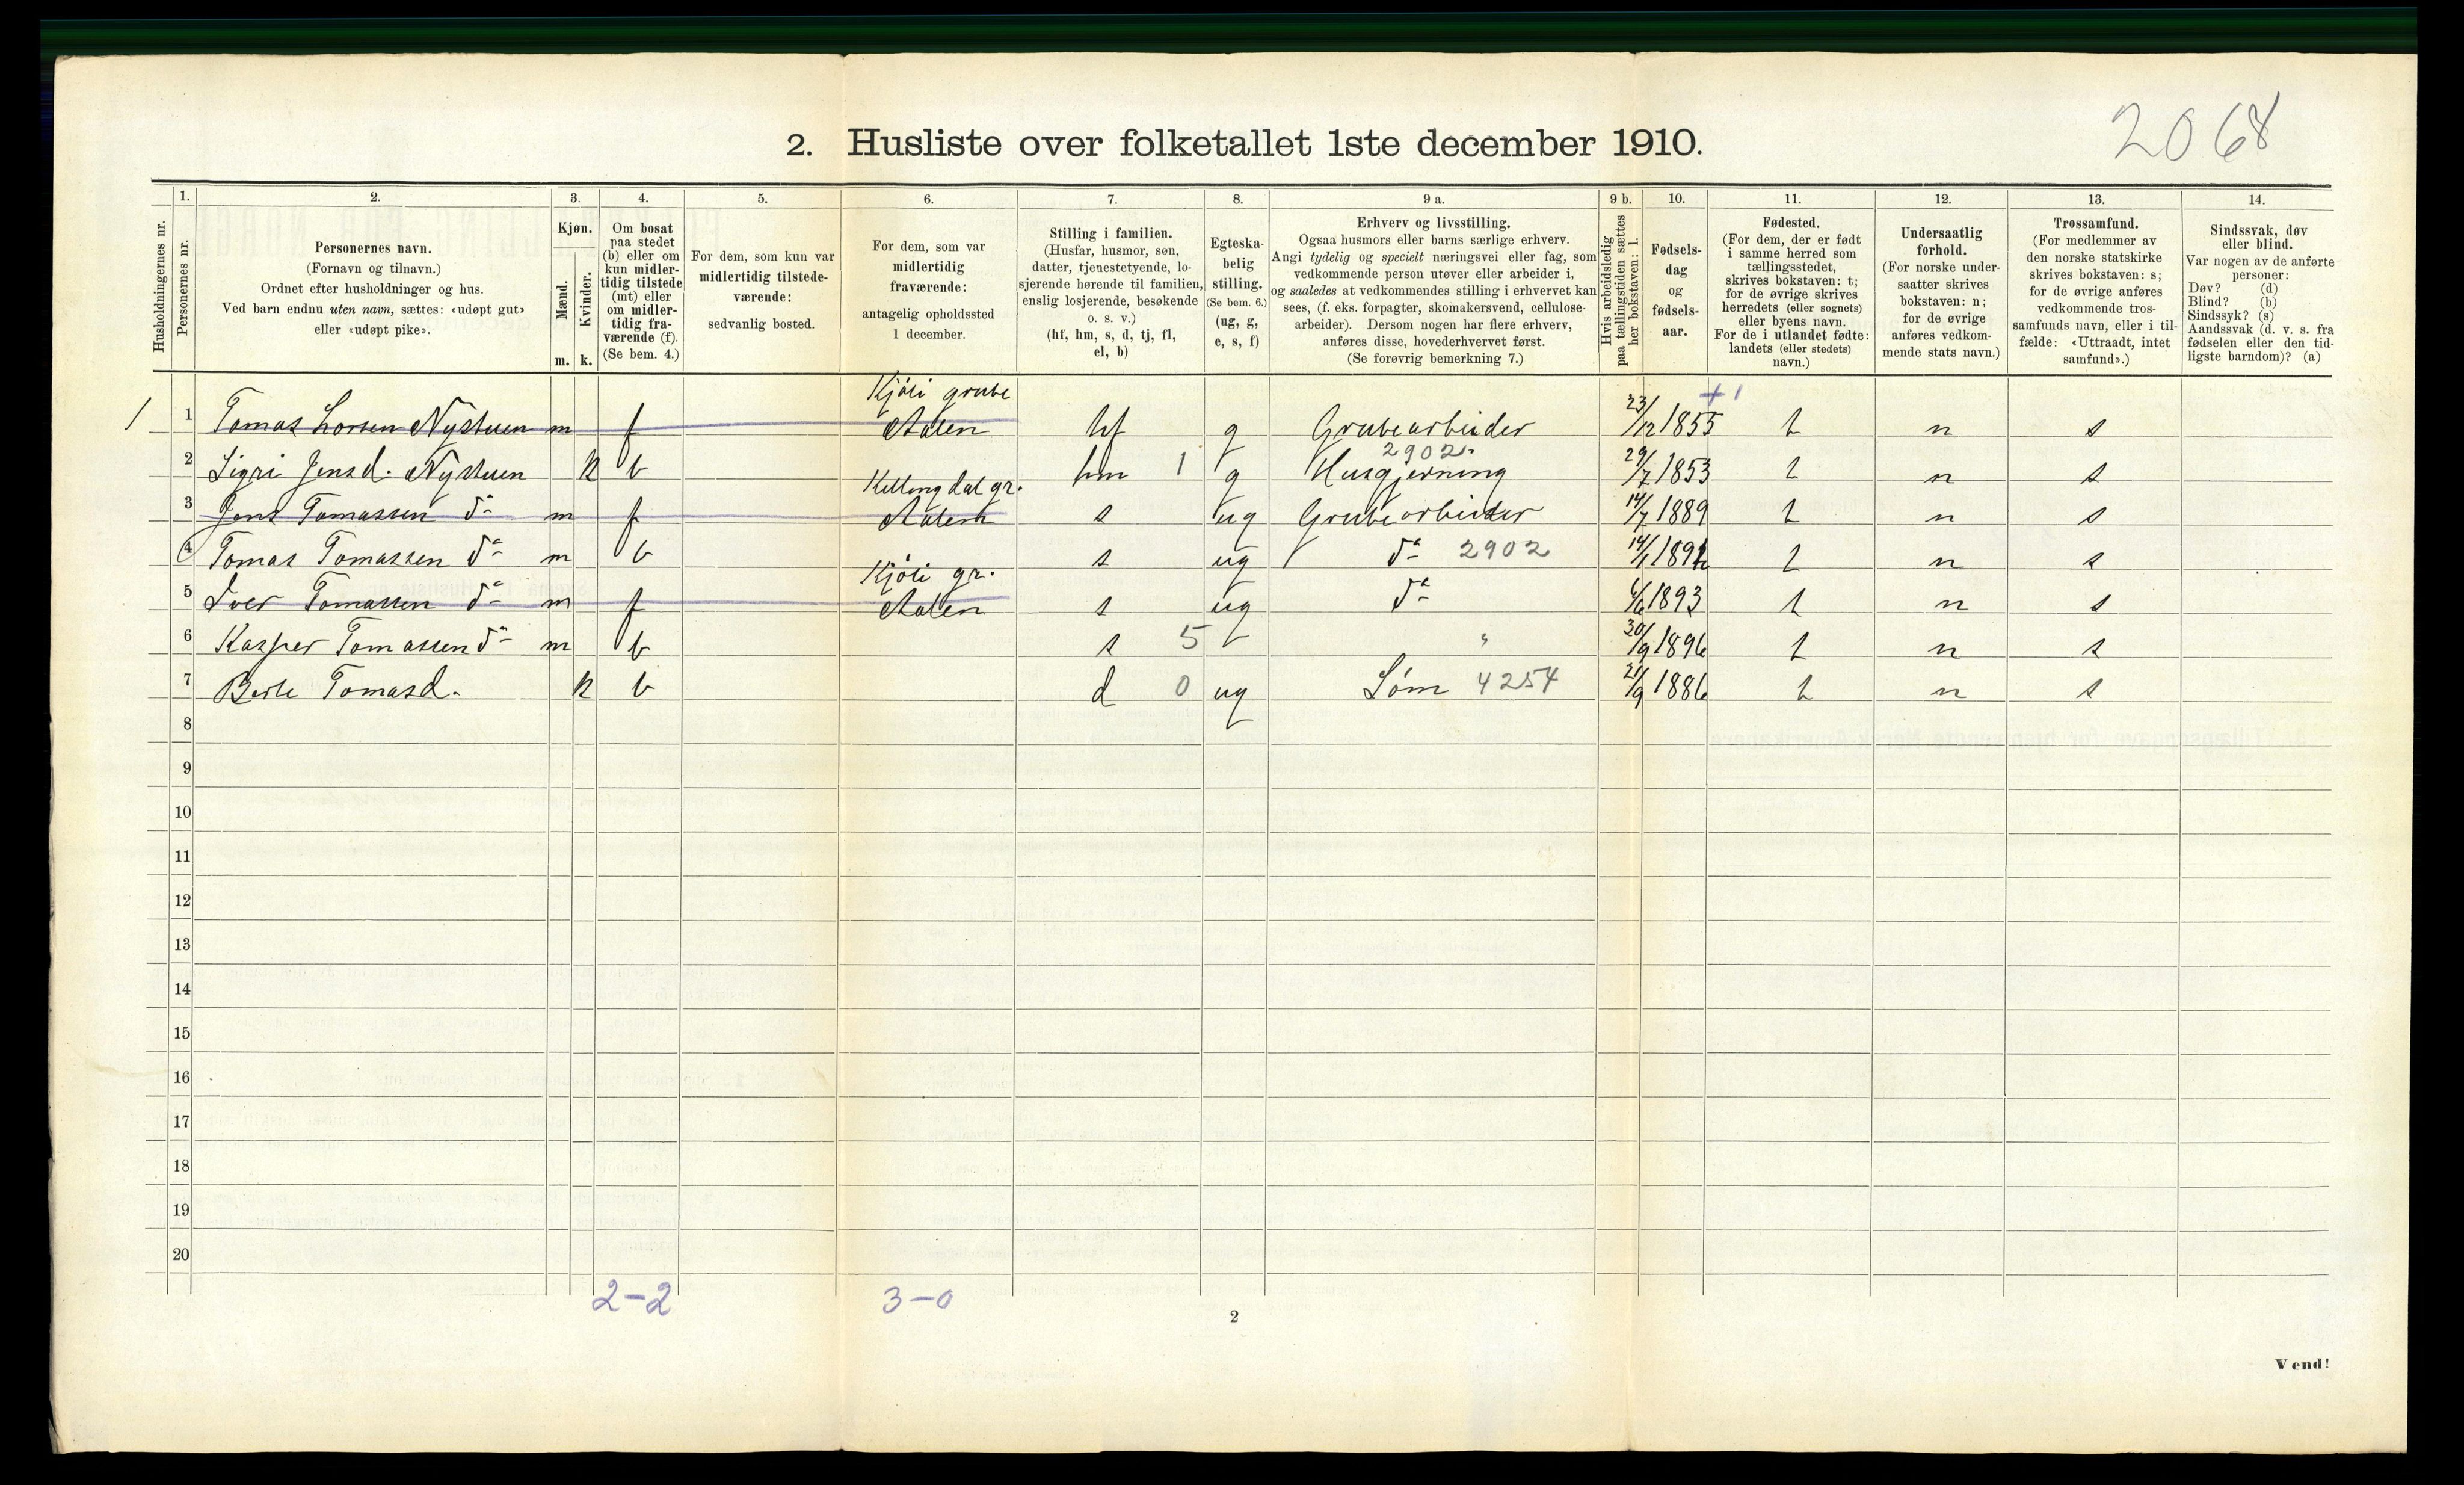 2068
2. Husliste over folketallet 1ste december 1910.
Husholdningernes nr.
1. Personernes nr.
2. Personernes navn. (Fornavn og tilnavn.) Ordnet efter husholdninger og hus. Ved barn endnu uten navn, sættes: «udøpt gut» eller «udøpt pike».
3. Kjøn. Mænd. m. Kvinder. k.
4. Om bosat paa stedet (b) eller om kun midlertidig tilstede (mt) eller om midlertidig fraværende (f). (Se bem. 4.)
5. For dem, som kun var midlertidig tilstedeværende: sedvanlig bosted.
6. For dem, som var midlertidig fraværende: antagelig opholdssted 1 december.
7. Stilling i familien. (Husfar, husmor, søn, datter, tjenestetyende, losjerende hørende til familien, enslig losjerende, besøkende o. s. v.) (hf, hm, s, d, tj, fl, el, b)
8. Egteskabelig stilling. (Se bem. 6.) (ug, g, e, s, f)
9 a. Erhverv og livsstilling. Ogsaa husmors eller barns særlige erhverv. Angi tydelig og specielt næringsvei eller fag, som vedkommende person utøver eller arbeider i, og saaledes at vedkommendes stilling i erhvervet kan sees, (f. eks. forpagter, skomakersvend, cellulosearbeider). Dersom nogen har flere erhverv, anføres disse, hovederhvervet først. (Se forøvrig bemerkning 7.)
9 b. Hvis arbeidsledig paa tællingstiden sættes her bokstaven: l.
10. Fødselsdag og fødselsaar.
11. Fødested. (For dem, der er født i samme herred som tællingsstedet, skrives bokstaven: t; for de øvrige skrives herredets (eller sognets) eller byens navn. For de i utlandet fødte: landets (eller stedets) navn.)
12. Undersaatlig forhold. (For norske undersaatter skrives bokstaven: n; for de øvrige anføres vedkommende stats navn.)
13. Trossamfund. (For medlemmer av den norske statskirke skrives bokstaven: s; for de øvrige anføres vedkommende trossamfunds navn, eller i tilfælde: «Uttraadt, intet samfund».)
14. Sindssvak, døv eller blind. Var nogen av de anførte personer: Døv? (d) Blind? (b) Sindssyk? (s) Aandssvak (d. v. s. fra fødselen eller den tidligste barndom)? (a)
1 1 Tomas Larsen Nystuen m f Kjøli grube Aalen hf g Grubearbeider 23/12 1855 t n s
2 Sigri Jensd. Nystuen k b hm 1 g 2902 Husgjerning 29/7 1853 t n s
3 Jens Tomassen do m f Killingdal gr. Aalen s ug Grubearbeider 14/7 1889 t n s
4 Tomas Tomassen do m b s ug do 2902 14/1 1892 t n s
5 Iver Tomassen do m f Kjøli gr. Aalen s ug do 6/6 1893 t n s
6 Kasper Tomassen do m b s 5 " 30/9 1896 t n s
7 Berte Tomasd. k b d 0 ug Søm 4254 21/9 1886 t n s
8
9
10
11
12
13
14
15
16
17
18
19
20
2-2 3-0
2
Vend!